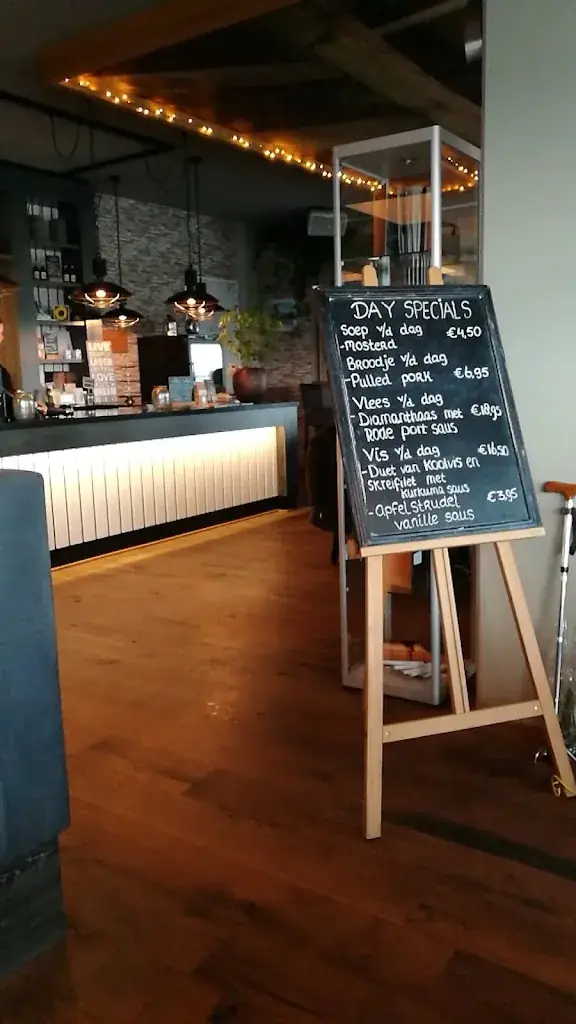 DAY SPECIALS
Soep v/d dag €4,50
-Mosterd
Broodje v/d dag
-Pulled pork €6,95
Vlees v/d dag
-Diamanthaas met €18,95
Rode port saus
Vis v/d dag €16,50
-Duet van Koolvis en
Skreifilet met
kurkuma saus
-Apfelstrudel €3,95
vanille saus
LIVE
LOVE